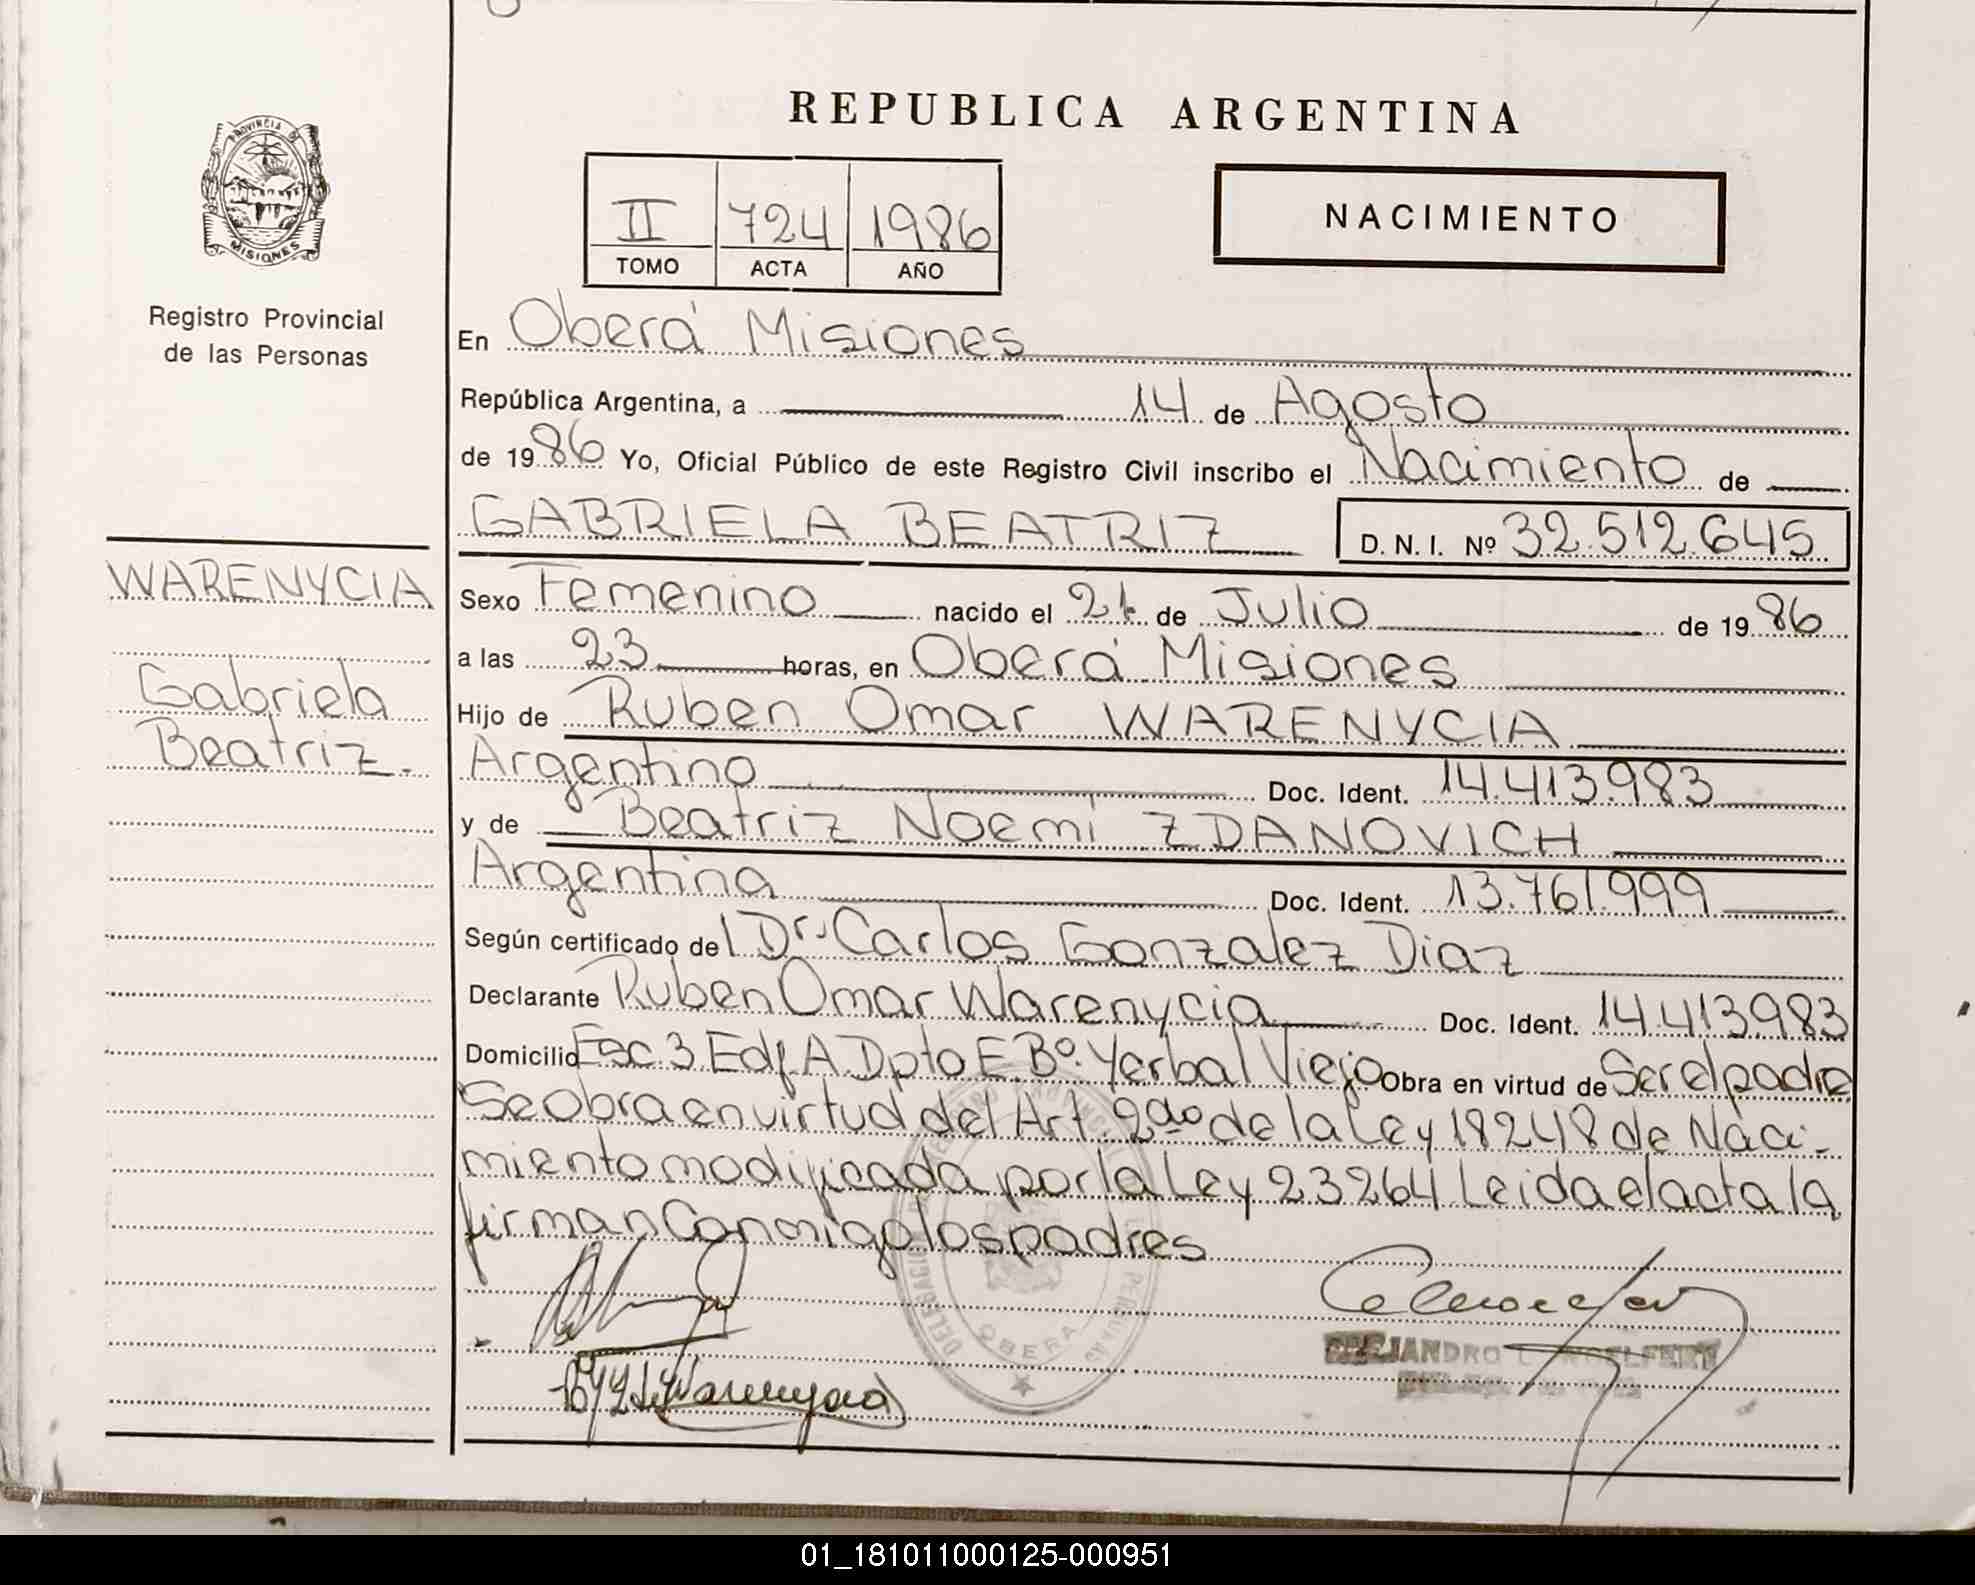 REPUBLICA ARGENTINA
PROVINCIA DE
MISIONES
Registro Provincial
de las Personas
II 724 1986
TOMO ACTA AÑO
NACIMIENTO
En Oberá Misiones
República Argentina, a 14 de Agosto
de 1986 Yo, Oficial Público de este Registro Civil inscribo el Nacimiento de
GABRIELA BEATRIZ D. N. I. Nº 32.512.645
WARENYCIA
Gabriela
Beatriz.
Sexo Femenino nacido el de Julio de 1986
a las 23 horas, en Oberá Misiones
Hijo de Ruben Omar WARENYCIA
Argentino Doc. Ident. 14.413.983
y de Beatriz Noemi ZDANOVICH
Argentina Doc. Ident. 13.761.999
Según certificado del Dr. Carlos Gonzalez Diaz
Declarante Ruben Omar Warenycia Doc. Ident. 14.413.983
Domicilio Esc. 3 Edf. A Dpto E. Bº. Yerbal Viejo Obra en virtud de Ser el padre
Se obra en virtud del Art. 2do de la Ley 18248 de Naci-
miento modificada por la Ley 23264 Leida el acta la
firman Conmigo los padres
OBERA
01_181011000125-000951